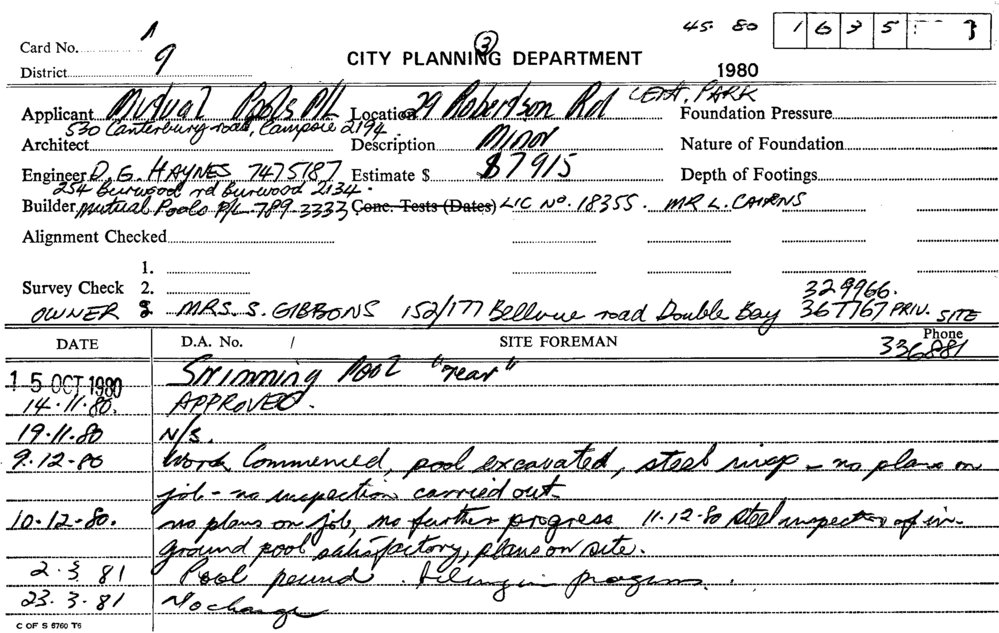 45. 80 1 6 3 5
Card No. 1
CITY PLANNING DEPARTMENT
3
District 9
1980
Applicant Mutual Pools P/L Location 29 Robertson Rd CENT. PARK Foundation Pressure
530 Canterbury road, Campsie 2194
Architect Description Minor Nature of Foundation
Engineer D. G. HAYNES 7475187 Estimate $ $7915 Depth of Footings
254 Burwood rd Burwood 2134.
Builder Mutual Pools P/L 789-3333 Conc. Tests (Dates) LIC No. 18355. MR L. CAIRNS
Alignment Checked
1.
Survey Check 2.
329966.
OWNER 3 MRS. S. GIBBONS 152/177 Bellevue road Double Bay 367767 PRIV. SITE
DATE D.A. No. / SITE FOREMAN Phone
336881
15 OCT 1980 Swimming Pool "rear"
14.11.80. APPROVED.
19.11.80 N/S.
9.12.80 Work Commenced, pool excavated, steel - no plans on
job - no inspection carried out.
10.12.80. no plans on job, no further progress 11.12.80 Steel inspection of in-
ground pool satisfactory, plans on site.
2.3 81 Pool . tiling in progress.
23.3.81 No change
C OF S 6760 T6